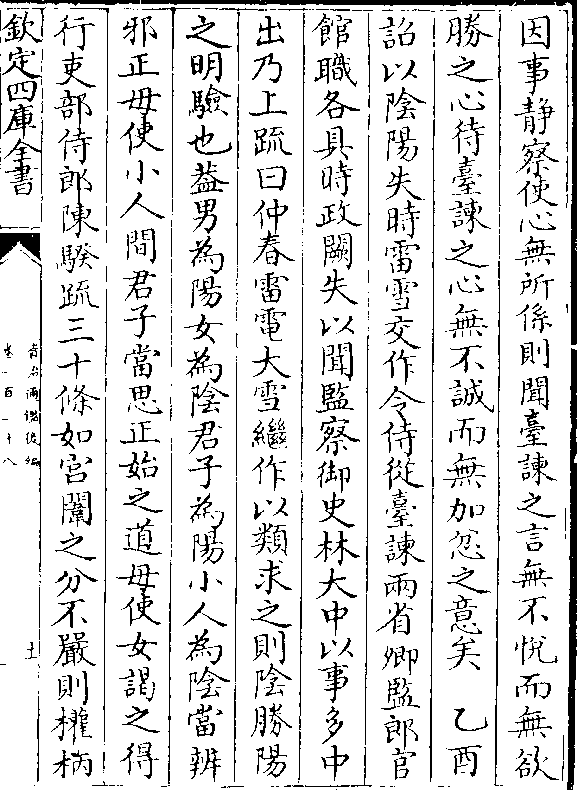 因事静察使心無所係則聞臺諫之言無不悅而無欲
勝之心待臺諫之心無不誠而無加忿之意矣　乙酉
詔以陰陽失時雷雪交作令侍從臺諫兩省卿監郎官
館職各具時政闕失以聞監察御史林大中以事多中
出乃上疏曰仲春雷電大雪繼作以類求之則陰勝陽
之明驗也葢男為陽女為陰君子為陽小人為陰當辨
邪正毋使小人間君子當思正始之道毋使女謁之得
行吏部侍郎陳騤疏三十條如宮闈之分不嚴則權柄
欽定四庫全書
資治通鑑後編
卷一百二十八